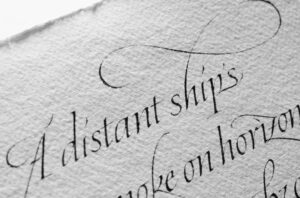 A distant ship's
smoke on horizon